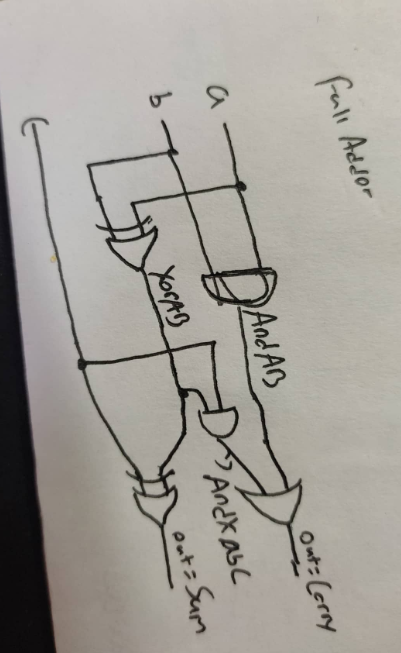 Full Addor
a
b
C
XorAB
AndAB
AndXabC
out=Carry
out=Sum